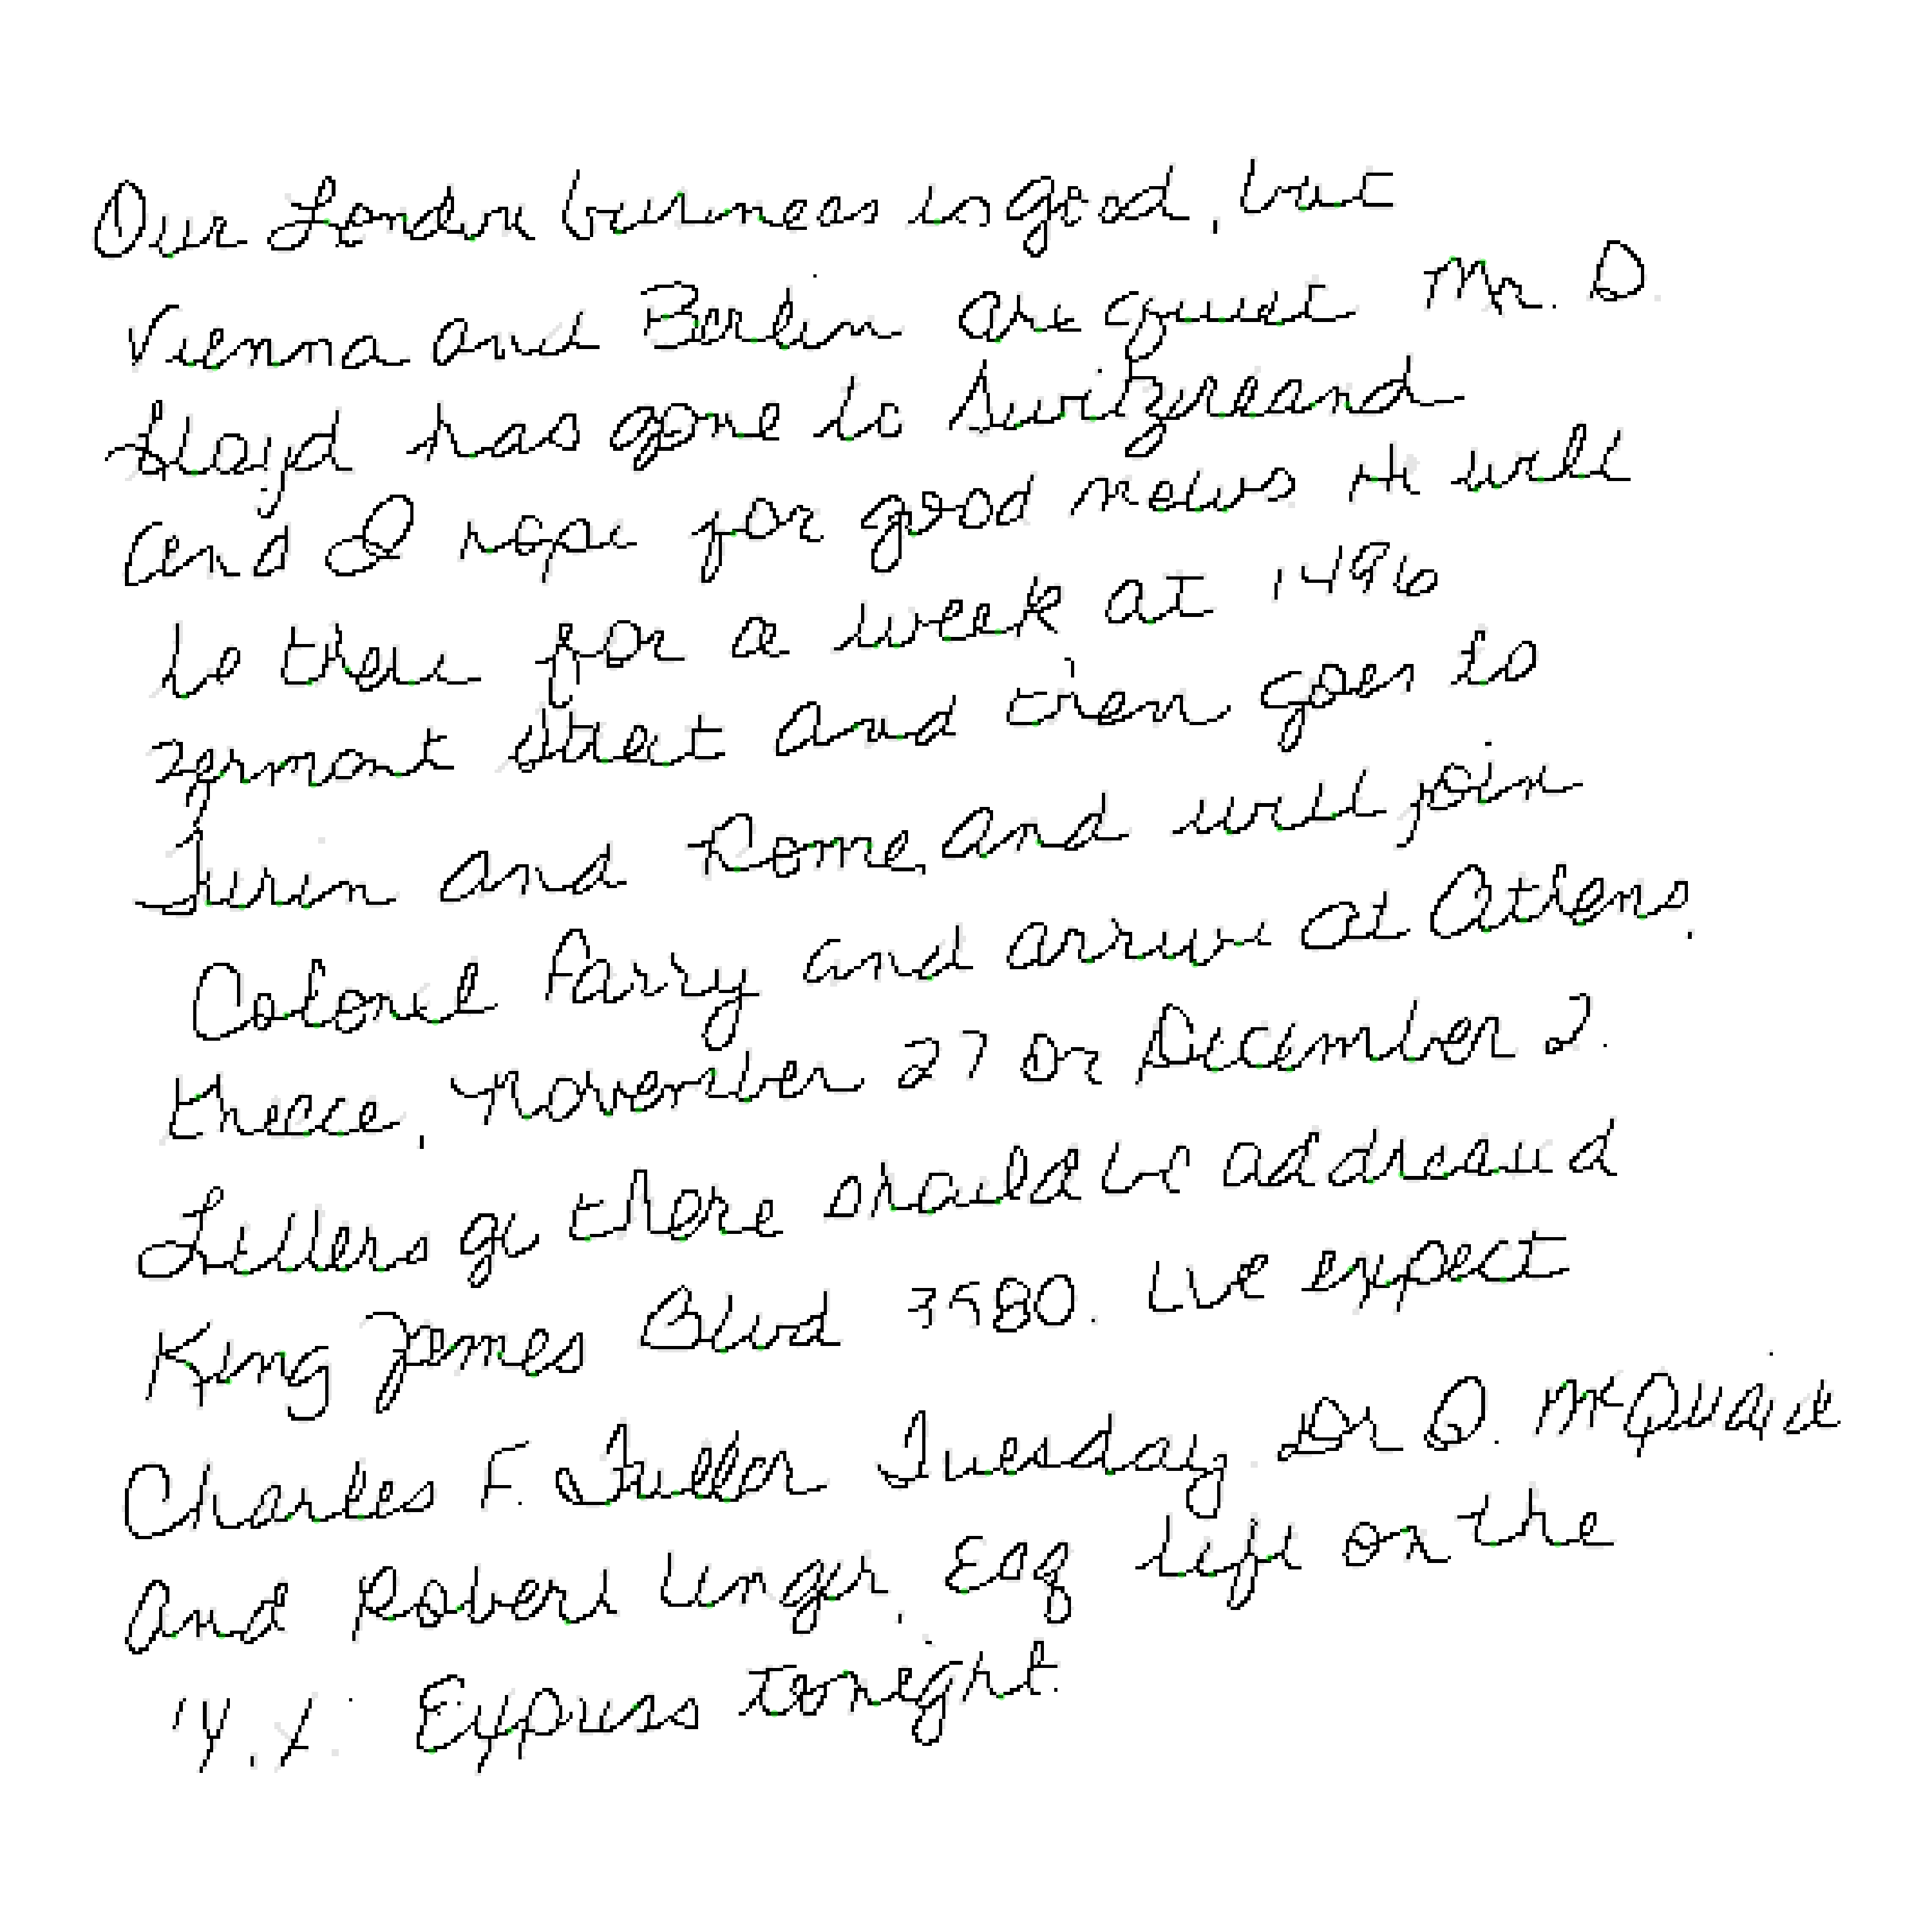 Our London business is good, but
Vienna and Berlin are quiet Mr. D.
Lloyd has gone to Switzerland
and I hope for good news He will
be there for a week at 1496
Zermont Street and then goes to
Turin and Rome, and will join
Colonel Parry and arrive at Athens,
Greece, November 27 or December 2.
Letters go there should be addressed
King James Blvd 3580. We expect
Charles F. Fuller Tuesday. Dr Q. McQuaid
and Robert Unger, Esq left on the
Y.X. Express tonight.